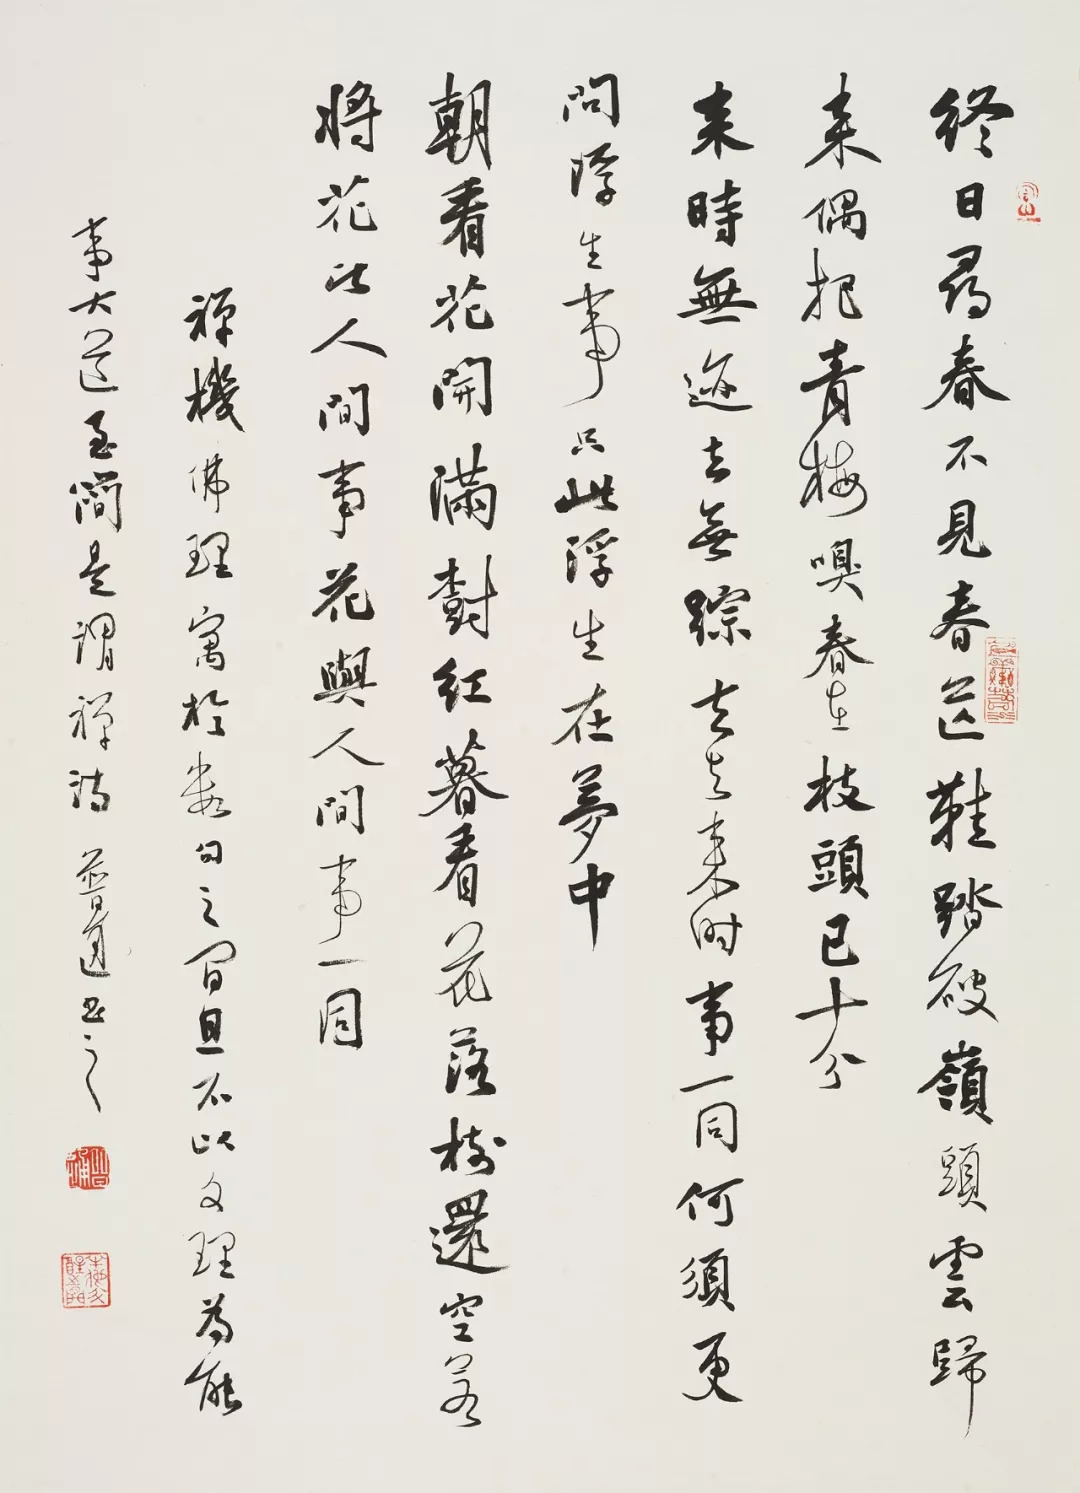 終日尋春不見春芒鞋踏破嶺頭雲歸
来偶把青梅嗅春在枝頭已十分
来時無迹去無踪去与来时事一同何須更
問浮生事只此浮生在夢中
朝看花開滿樹紅暮看花落樹還空若
將花比人間事花與人間事一同
禪機佛理寓於数句之間且不以文理為能
事大道至簡是謂禪詩 普道书之